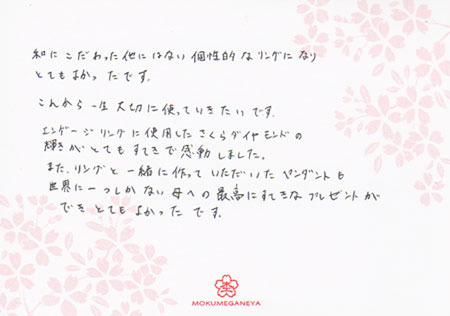 和にこだわった他にはない個性的なリングになり
とてもよかったです。
これから一生大切に使っていきたいです。
エンゲージリングに使用したさくらダイヤモンドの
輝きがとてもすてきで感動しました。
また、リングと一緒に作っていただいたペンダントも
世界に一つしかない母への最高にすてきなプレゼントが
できとてもよかったです。
MOKUMEGANEYA